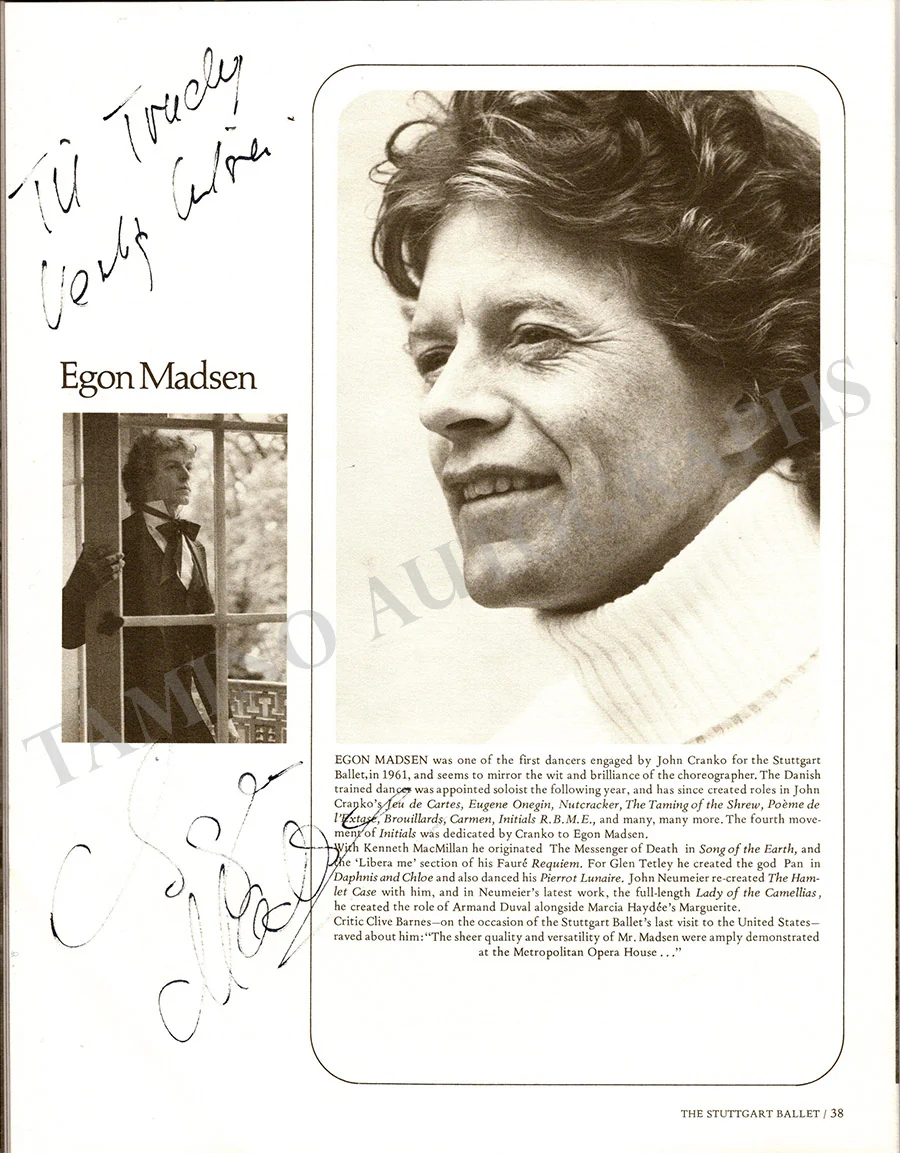 Til Trudy
Egon Madsen
EGON MADSEN was one of the first dancers engaged by John Cranko for the Stuttgart
Ballet, in 1961, and seems to mirror the wit and brilliance of the choreographer. The Danish
trained dancer was appointed soloist the following year, and has since created roles in John
Cranko's Jeu de Cartes, Eugene Onegin, Nutcracker, The Taming of the Shrew, Poème de
l'Extase, Brouillards, Carmen, Initials R.B.M.E., and many, many more. The fourth move-
ment of Initials was dedicated by Cranko to Egon Madsen.
With Kenneth MacMillan he originated The Messenger of Death in Song of the Earth, and
the 'Libera me' section of his Fauré Requiem. For Glen Tetley he created the god Pan in
Daphnis and Chloe and also danced his Pierrot Lunaire. John Neumeier re-created The Ham-
let Case with him, and in Neumeier's latest work, the full-length Lady of the Camellias,
he created the role of Armand Duval alongside Marcia Haydée's Marguerite.
Critic Clive Barnes—on the occasion of the Stuttgart Ballet's last visit to the United States—
raved about him: "The sheer quality and versatility of Mr. Madsen were amply demonstrated
at the Metropolitan Opera House . . ."
THE STUTTGART BALLET / 38
TAMINO AUTOGRAPHS